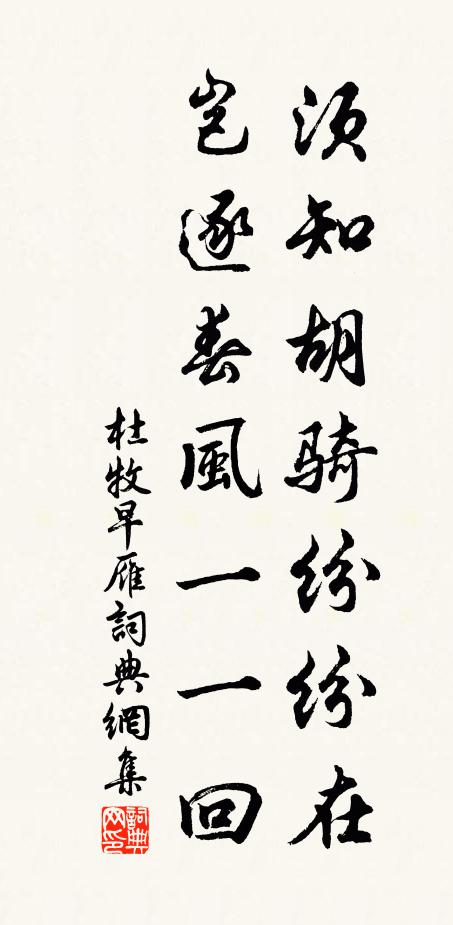 須知胡騎紛紛在
豈逐春風一一回
杜牧早雁詞典網集
詞典網印